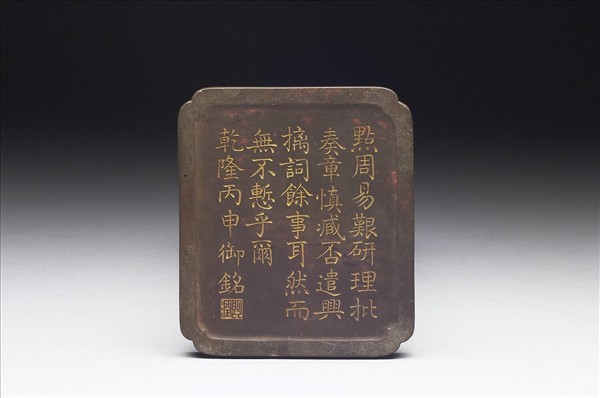 點周易艱研理批
奏章慎臧否遣興
摛詞餘事耳然而
無不慙乎爾
乾隆丙申御銘